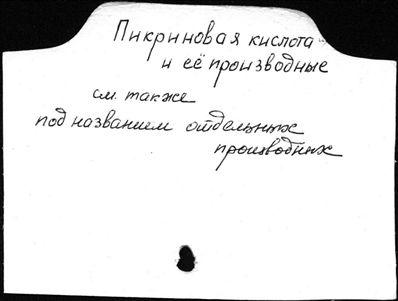 Пикриновая кислота
и её производные
см. также
под названием отдельных
производных